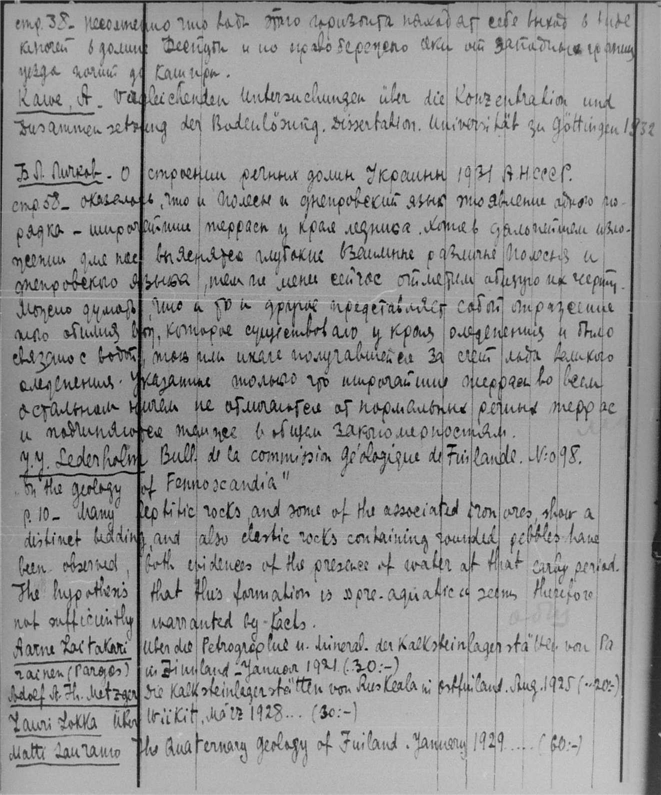 стр. 38 - несомненно что воды этого горизонта находят себе выход в виде
ключей в долине и по правобережью Оки от западных границ
уезда почти до Каширы.
Kawe, A. - Vergleichenden Untersuchungen über die Konzentration und
Zusammensetzung der Bodenlösung. Dissertation. Universität zu Göttingen 1932
Б. Л. Личков - О строении речных долин Украины 1931 АНСССР.
стр 58 - оказалось, что и Полесье и днепровский язык это явление одного по-
рядка - широчайшие террасы у края ледника. Хотя в дальнейшем изло-
жении для нас выяснятся глубокие взаимные различия Полесья и
днепровского языка, тем не менее сейчас отметим общую их черту.
Можно думать, что и то и другое представляет собой отражение
того обилия вод, которое существовало у края оледенения и было
связано с водой, тою или иначе получавшейся за счет льда великого
оледенения. Указание только что широчайшие террасы во всем
остальном ничем не отличаются от нормальных речных террас
и подчиняются тем же общим закономерностям.
J. J. Sederholm Bull. de la commission géologique de Finlande. N:o 98.
"On the geology of Fennoscandia"
p. 10 - Many leptitic rocks, and some of the associated iron ores, show a
distinct bedding, and also clastic rocks containing rounded pebbles have
been observed, both evidences of the presence of water at that early period.
The hypothesis that this formation is pre-aquatic seems therefore
not sufficiently warranted by facts.
Aarne Laitakari Über die Petrographie u. Mineral. der Kalksteinlagerstätten von Pa
rainen (Pargas) in Finnland - Januar 1921 (30:-)
Adolf A. Th. Metzger Die Kalksteinlagerstätten von Ruskeala in Ostfinland. Aug. 1925 (20:-)
Lauri Lokka Über Wiikit, März 1928 ... (30:-)
Matti Sauramo The Quaternary geology of Finland. January 1929 ..... (60:-)